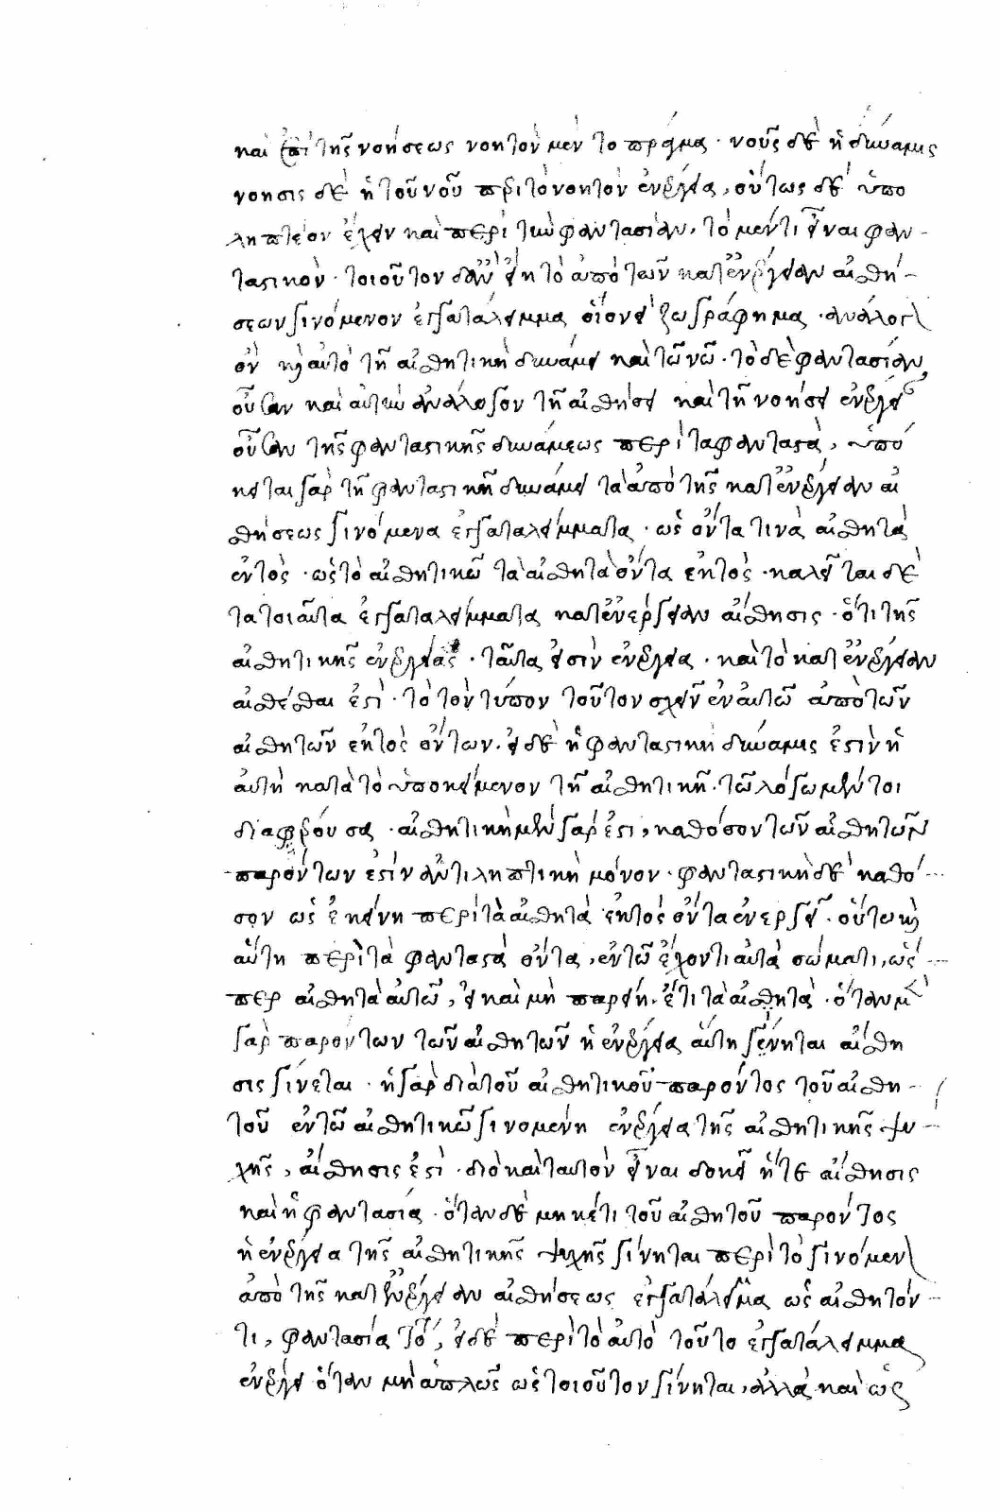 καὶ ἐπὶ τῆς νοήσεως νοητὸν μὲν τὸ πρᾶγμα · νοῦς δὲ ἡ δύναμις
νόησις δὲ ἡ τοῦ νοῦ περὶ τὸ νοητὸν ἐνέργεια, οὕτως δὲ ὑπο
ληπτέον ἔχειν καὶ περὶ τὴν φαντασίαν, τὸ μέντι εἶναι φαν-
τασικὸν · τοιοῦτον δ' ἂν εἴη τὸ ἀπὸ τῶν κατ' ἐνέργειαν αἰσθή-
σεων γινόμενον ἐγκατάλειμμα οἱονεὶ ζωγράφημα · ἀνάλογ
ὂν κ αὐτὸ τῇ αἰσθητικῇ δυνάμει καὶ τῷ νῷ · τὸ δὲ φαντασίαν,
οὖσαν καὶ αὐτὴν ἀνάλογον τῇ αἰσθήσει καὶ τῇ νοήσει ἐνέργεια
οὖσαν τῆς φαντασικῆς δυνάμεως περὶ τὰ φαντασὰ, ὑπό
κειται γὰρ τῇ φαντασικῇ δυνάμει τὰ ἀπὸ τῆς κατ' ἐνέργειαν αἰ
σθήσεως γινόμενα ἐγκαταλείμματα · ὡς ὄντα τινὰ αἰσθητὰ
ἐντὸς · ὡς τὸ αἰσθητικῷ τὰ αἰσθητὰ ὄντα ἐκτὸς · καλεῖται δὲ
τὰ τοιαῦτα ἐγκαταλείμματα κατ' ἐνέργειαν αἴσθησις · ὅτι τῆς
αἰσθητικῆς ἐνεργείας · ταῦτα εἰσὶν ἐνέργεια · καὶ τὸ κατ' ἐνέργειαν
αἰσθέσθαι ἐστὶ · τὸ τὸν τύπον τοῦτον σχεῖν ἐν αὐτῷ ἀπὸ τῶν
αἰσθητῶν ἐκτὸς ὄντων. εἰ δὲ ἡ φαντασικὴ δύναμις ἐστὶν ἡ
αὐτὴ κατὰ τὸ ὑποκείμενον τῇ αἰσθητικῇ · τῷ λόγῳ μέντοι
διαφέρουσα · αἰσθητικὴ μὲν γάρ ἐστι, καθόσον τῶν αἰσθητῶν
παρόντων ἐστὶν ἀντιληπτικὴ μόνον · φαντασικὴ δὲ καθό-
σον ὡς ἐκείνη περὶ τὰ αἰσθητὰ ἐκτὸς ὄντα ἐνεργεῖ · οὕτω κ
αὕτη περὶ τὰ φαντασὰ ὄντα, ἐν τῷ ἔχοντι αὐτὰ σώματι, ὥσ-
περ αἰσθητὰ αὐτῷ, εἰ καὶ μὴ παρείη ἔτι τὰ αἰσθητὰ · ὅταν μ
γὰρ παρόντων τῶν αἰσθητῶν ἡ ἐνέργεια αὕτη γένηται αἴσθη
σις γίνεται · ἡ γὰρ διὰ τοῦ αἰσθητικοῦ παρόντος τοῦ αἰσθη-
τοῦ ἐν τῷ αἰσθητικῷ γινομένη ἐνέργεια τῆς αἰσθητικῆς ψυ-
χῆς, αἴσθησις ἐστὶ · διὸ καὶ ταυτὸν εἶναι δοκεῖ ἥτε αἴσθησις
καὶ ἡ φαντασία · ὅταν δὲ μηκέτι τοῦ αἰσθητοῦ παρόντος
ἡ ἐνέργεια τῆς αἰσθητικῆς ψυχῆς γίνηται περὶ τὸ γινόμεν
ἀπὸ τῆς κατ' ἐνέργειαν αἰσθήσεως ἐγκατάλειμμα ὡς αἰσθητόν
τι, φαντασία τὸ, εἰ δὲ περὶ τὸ αὐτὸ τοῦτο ἐγκατάλειμμα
ἐνέργει ὅταν μὴ ἁπλῶς ὡς τοιοῦτον γίνηται, ἀλλὰ καὶ ὡς